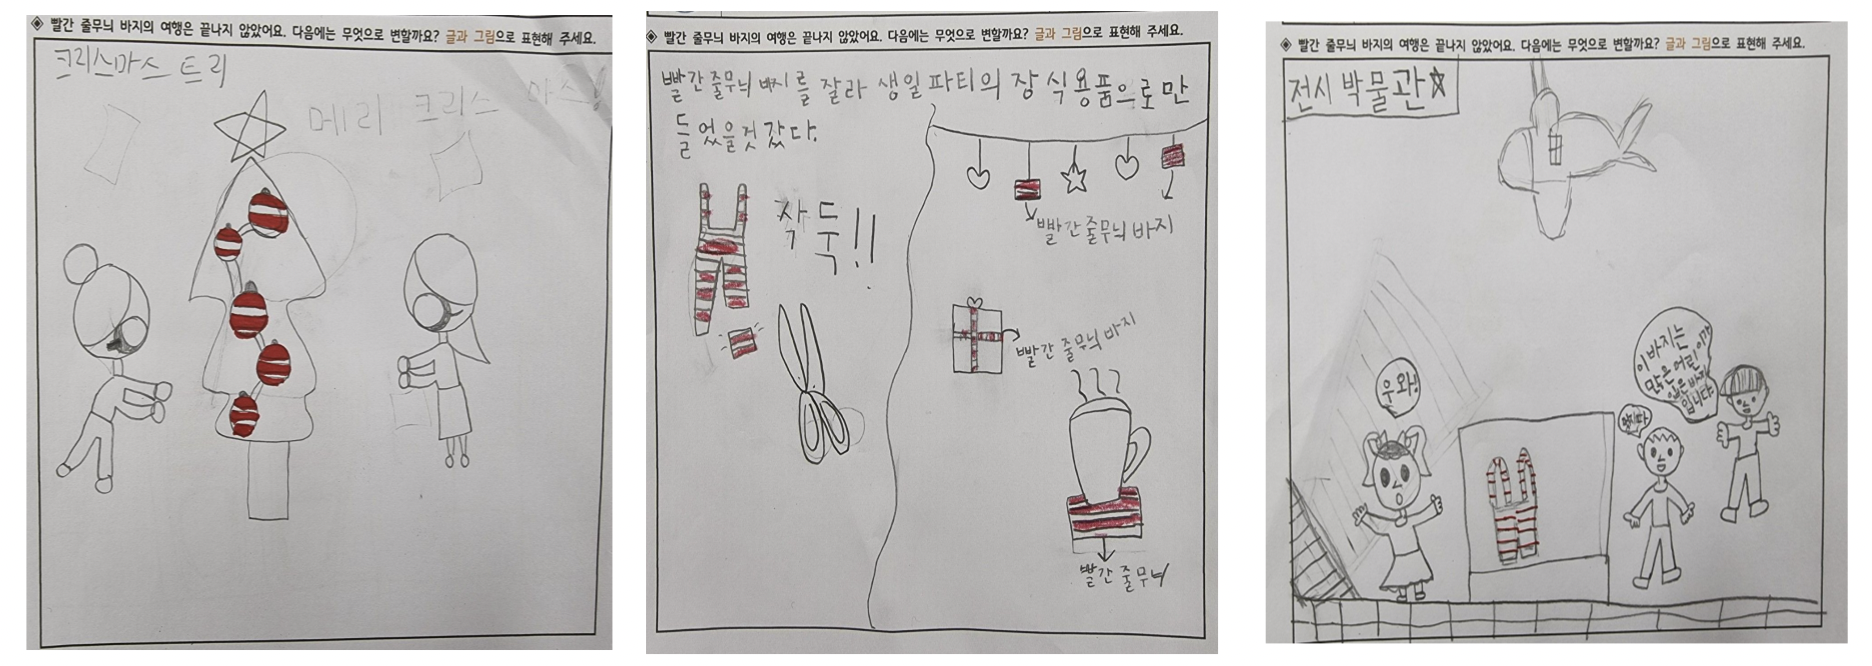 ◈ 빨간 줄무늬 바지의 여행은 끝나지 않았어요. 다음에는 무엇으로 변할까요? 글과 그림으로 표현해 주세요.
크리스마스 트리
메리 크리스마스!
◈ 빨간 줄무늬 바지의 여행은 끝나지 않았어요. 다음에는 무엇으로 변할까요? 글과 그림으로 표현해 주세요.
빨간 줄무늬 바지를 잘라 생일 파티의 장식용품으로 만
들었을것 갔다.
싹둑!!
빨간 줄무늬 바지
빨간 줄무늬 바지
빨간 줄무늬
◈ 빨간 줄무늬 바지의 여행은 끝나지 않았어요. 다음에는 무엇으로 변할까요? 글과 그림으로 표현해 주세요.
전시 박물관☆
우와!
이 바지는
많은 어린이만
입은 바지
입니다